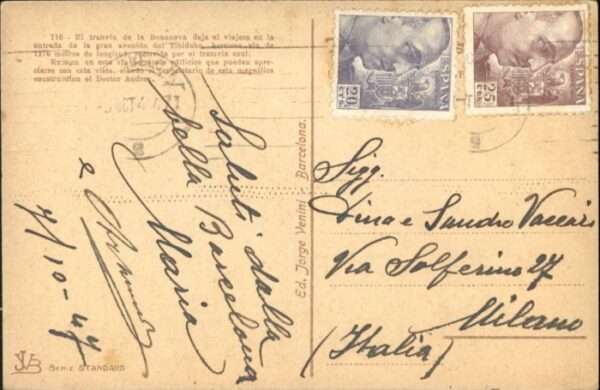 116 - El tranvía de la Bonanova deja al viajero en la
entrada de la gran avenida del Tibidabo, hermosa vía de
1176 metros de longitud recorrida por el tranvía azul.
Existen en esta vía
ciarse con esta vista, siendo el propietario de esta magnífica
construcción el Doctor Andreu
Saluti dalla
bella Barcelona
Maria
e
7/10-47
Ed. Jorge Venini - Barcelona.
ESPAÑA
20 CTS
ESPAÑA
25 CTS
Sigg.
Dina e Sandro Vaccari
Via Solferino 27
Milano
(Italia)
JVB
Serie STANDARD